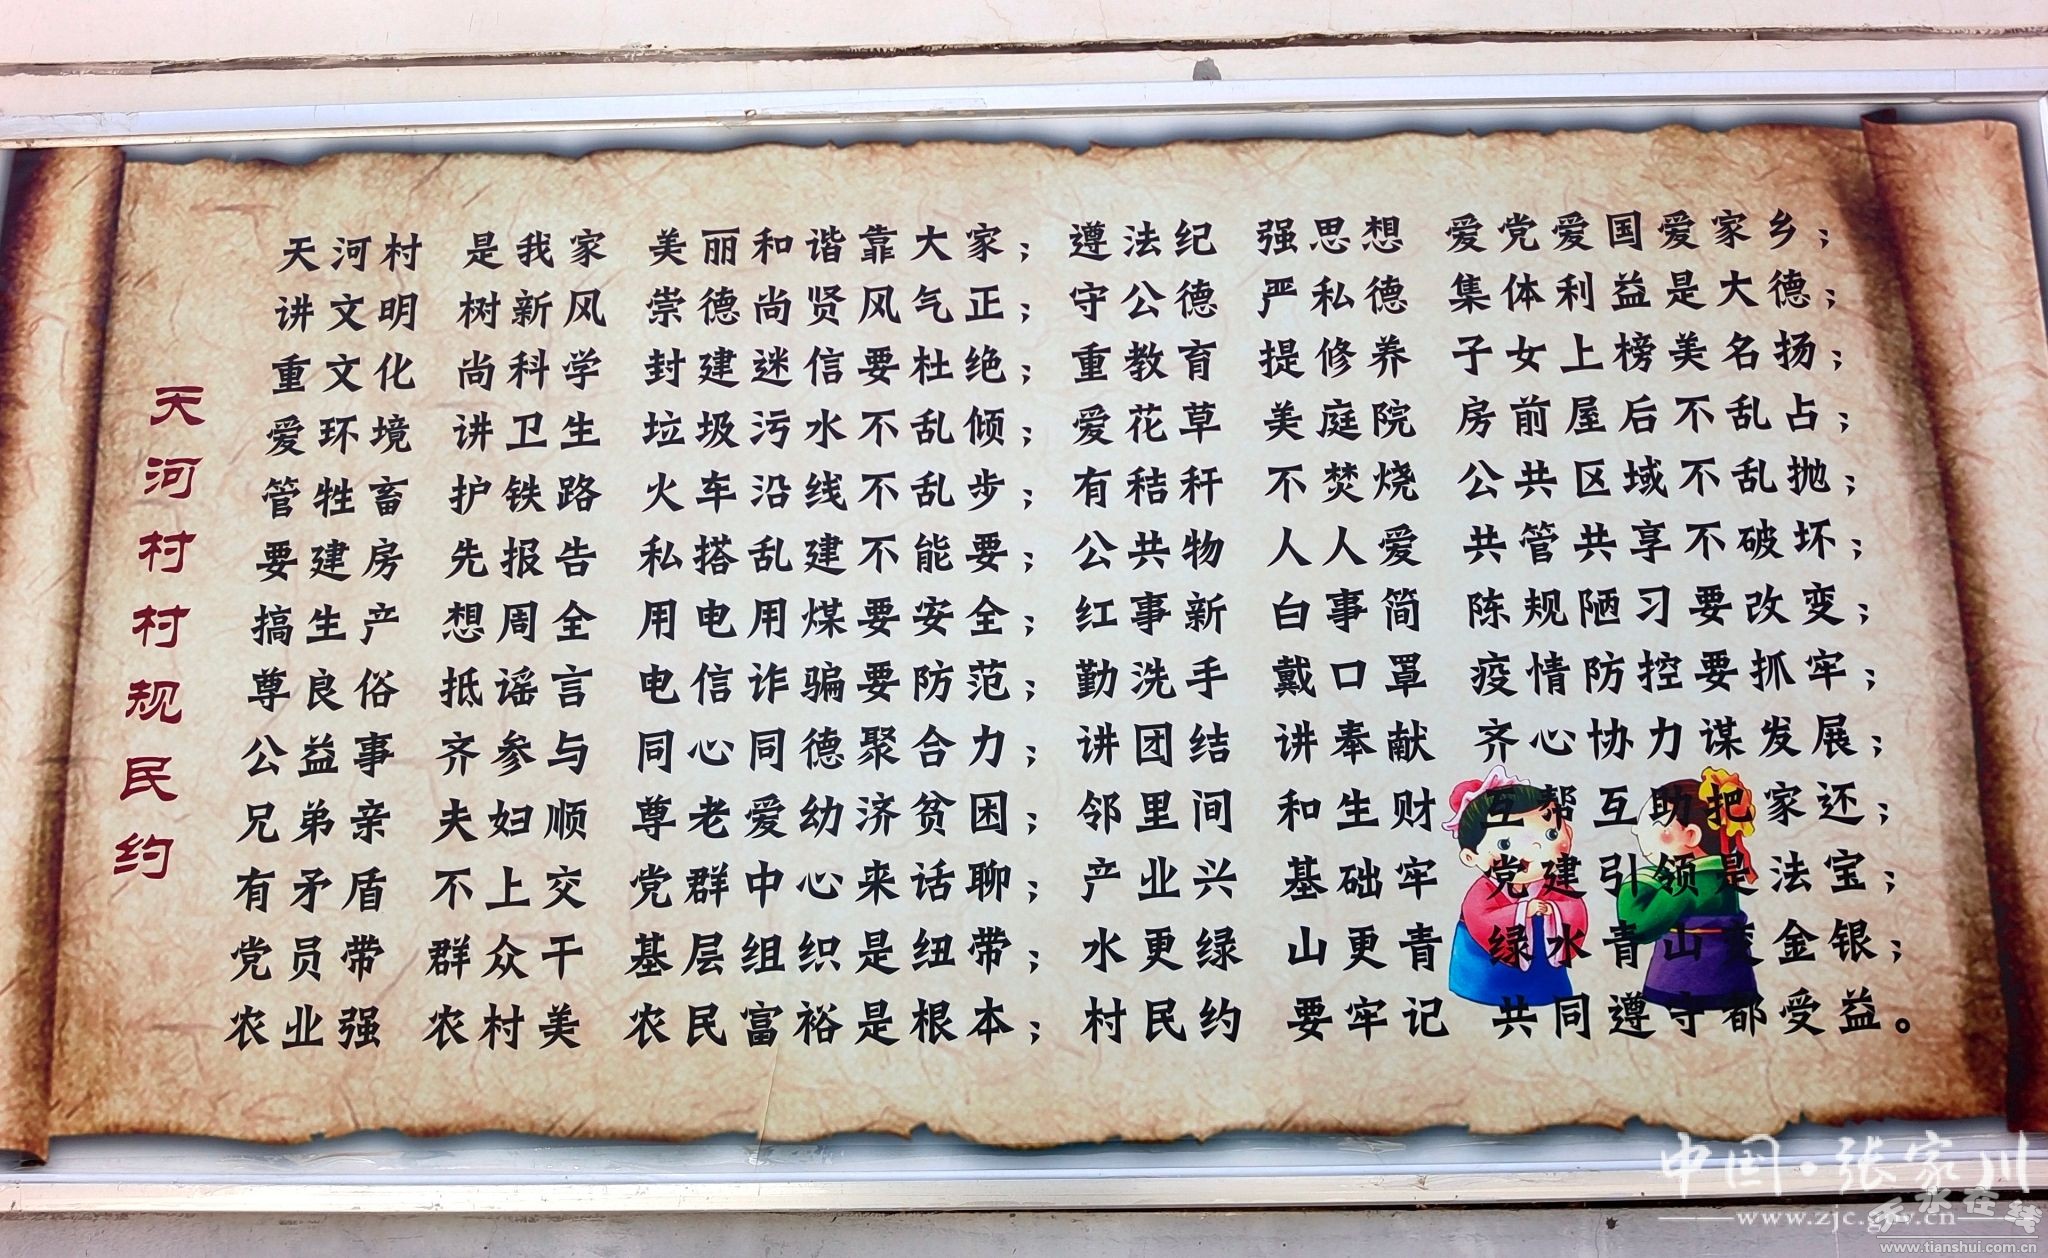 天河村村规民约
天河村 是我家 美丽和谐靠大家；遵法纪 强思想 爱党爱国爱家乡；
讲文明 树新风 崇德尚贤风气正；守公德 严私德 集体利益是大德；
重文化 尚科学 封建迷信要杜绝；重教育 提修养 子女上榜美名扬；
爱环境 讲卫生 垃圾污水不乱倾；爱花草 美庭院 房前屋后不乱占；
管牲畜 护铁路 火车沿线不乱步；有秸秆 不焚烧 公共区域不乱抛；
要建房 先报告 私搭乱建不能要；公共物 人人爱 共管共享不破坏；
搞生产 想周全 用电用煤要安全；红事新 白事简 陈规陋习要改变；
尊良俗 抵谣言 电信诈骗要防范；勤洗手 戴口罩 疫情防控要抓牢；
公益事 齐参与 同心同德聚合力；讲团结 讲奉献 齐心协力谋发展；
兄弟亲 夫妇顺 尊老爱幼济贫困；邻里间 和生财 互帮互助把家还；
有矛盾 不上交 党群中心来话聊；产业兴 基础牢 党建引领是法宝；
党员带 群众干 基层组织是纽带；水更绿 山更青 绿水青山变金银；
农业强 农村美 农民富裕是根本；村民约 要牢记 共同遵守都受益。
中国·张家川
www.zjc.gov.cn
天水在线
www.tianshui.com.cn